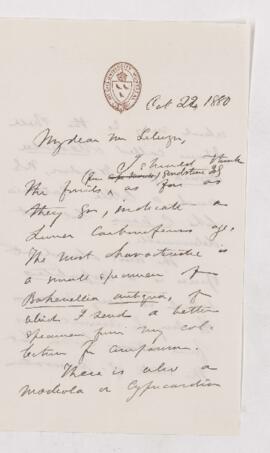 Oct 22d 1880
My dear Mr
I should think
The fossils, as far as
they go, indicate a
Lower Carboniferous age.
The most characteristic is
a small specimen of
Bakewellia antiqua, of
which I send a better
specimen from my col-
lection for comparison.
There is also a
Modiola or Cypricardia